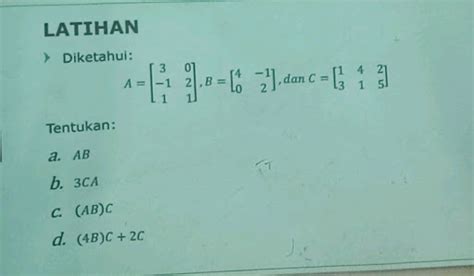 LATIHAN
Diketahui:
A = [3 0; -1 2; 1 1], B = [4 -1; 0 2], dan C = [1 4 2; 3 1 5]
Tentukan:
a. AB
b. 3CA
c. (AB)C
d. (4B)C + 2C